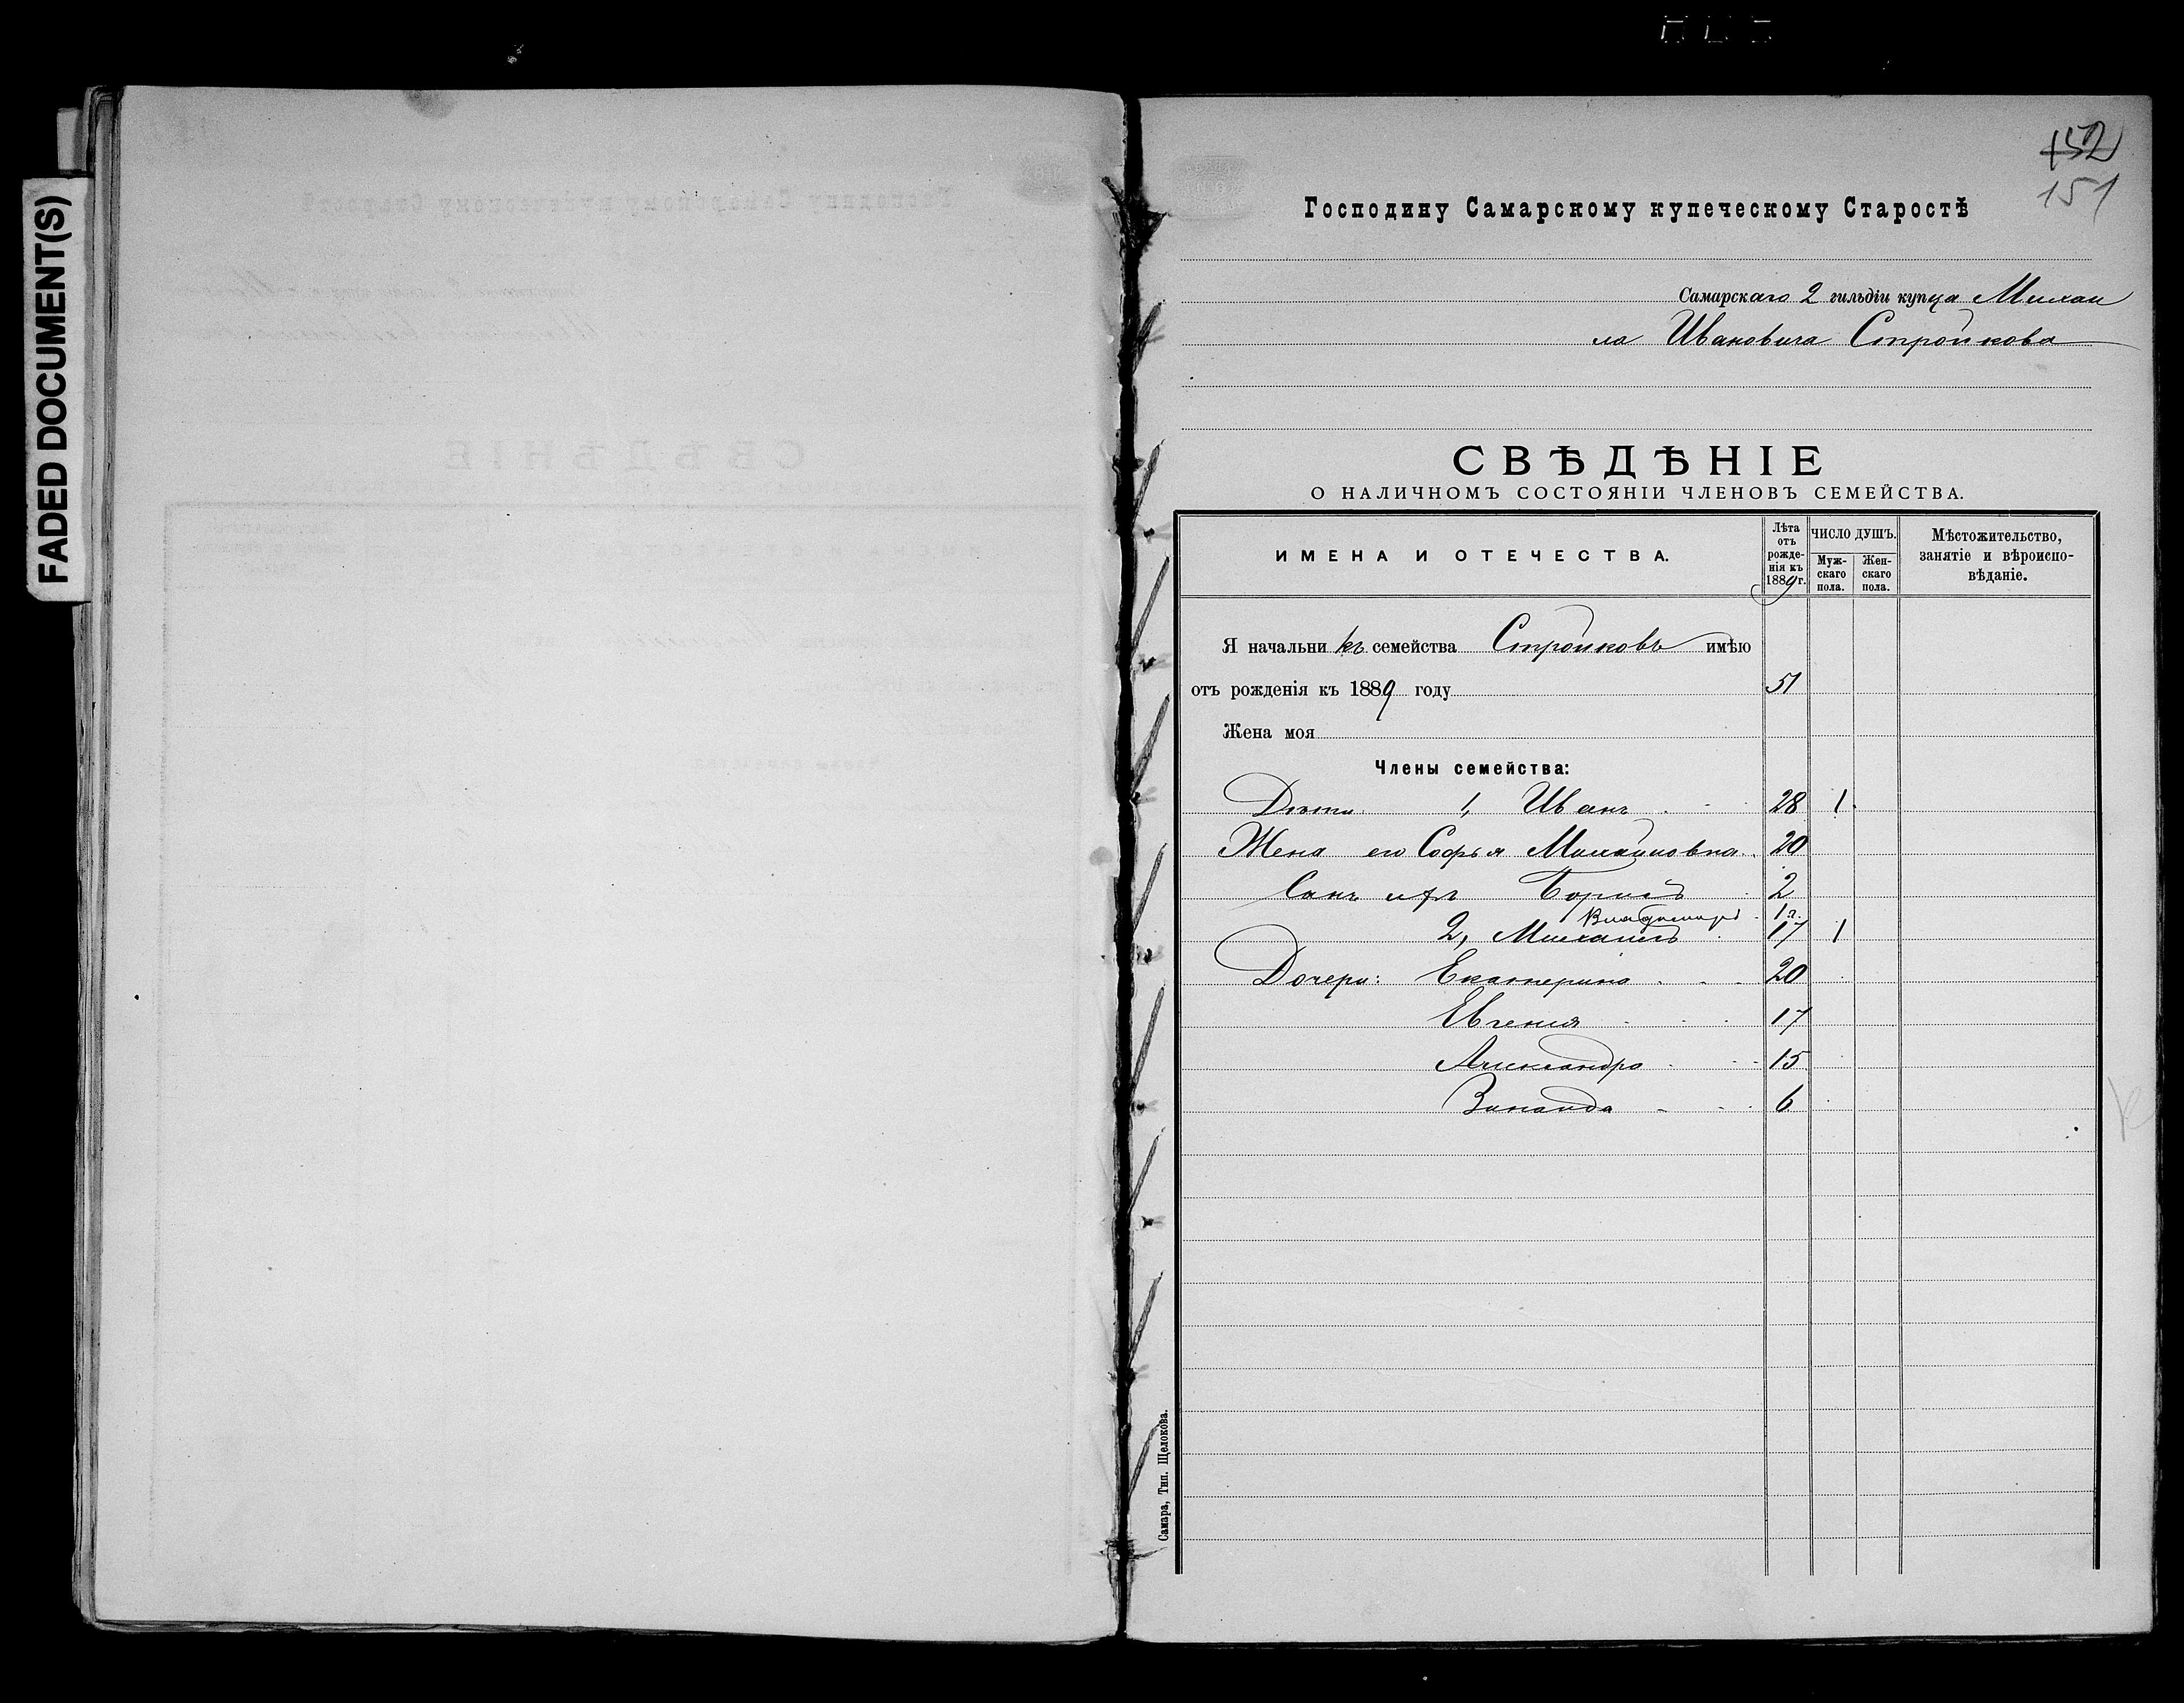 FADED DOCUMENT(S)
152
151
Господину Самарскому купеческому Старостѣ
Самарскаго 2 гильдіи купца Михаи
ла Ивановича Стройкова
СВѢДѢНІЕ
О НАЛИЧНОМЪ СОСТОЯНІИ ЧЛЕНОВЪ СЕМЕЙСТВА.
ИМЕНА И ОТЕЧЕСТВА.
Лѣта отъ рожде-нія къ 1889 г.
ЧИСЛО ДУШЪ.
Муж-скаго пола.
Жен-скаго пола.
Мѣстожительство, занятіе и вѣроиспо-вѣданіе.
Я начальникъ семейства Стройковъ имѣю
отъ рожденія къ 1889 году 51
Жена моя
Члены семейства:
Дѣти: 1, Иванъ 28 1
Жена его Софья Михайловна 20
Сынъ ихъ Борисъ 2
Владимиръ 1 г.
2, Михаилъ 17 1
Дочери: Екатерина 20
Евгенія 17
Александра 15
Зинаида 6
Самара, Тип. Щелокова.